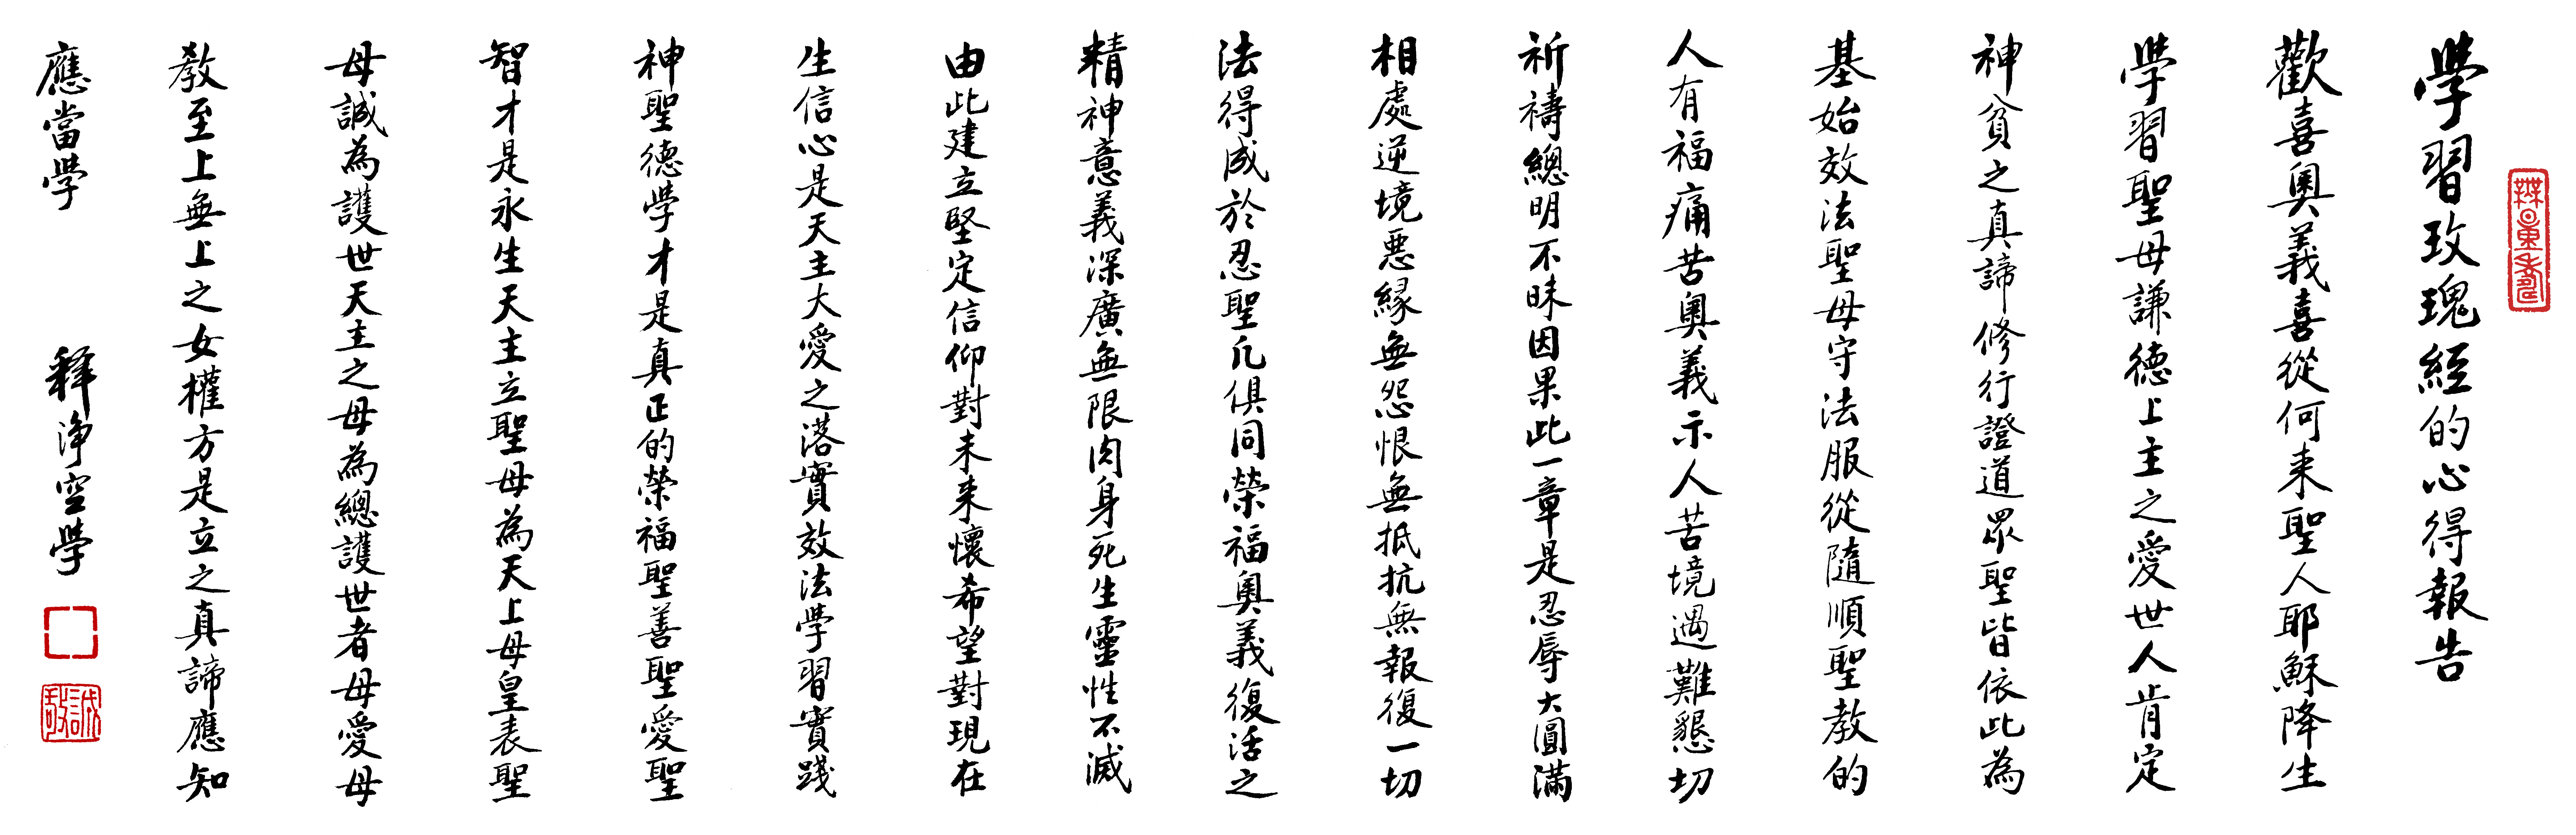 學習玫瑰經的心得報告
歡喜奧義喜從何来聖人耶穌降生
學習聖母謙德上主之愛世人肯定
神貧之真諦修行證道眾聖皆依此為
基始效法聖母守法服從隨順聖教的
人有福痛苦奧義示人苦境遇難懇切
祈禱總明不昧因果此一章是忍辱大圓滿
相處逆境惡緣無怨恨無抵抗無報復一切
法得成於忍聖凡俱同榮福奧義復活之
精神意義深廣無限肉身死生靈性不滅
由此建立堅定信仰對未来懷希望對現在
生信心是天主大愛之落實效法學習實踐
神聖德學才是真正的榮福聖善聖愛聖
智才是永生天主立聖母為天上母皇表聖
母誠為護世天主之母為總護世者母愛母
教至上無上之女權方是立之真諦應知
應當學
釋淨空學
誠敬